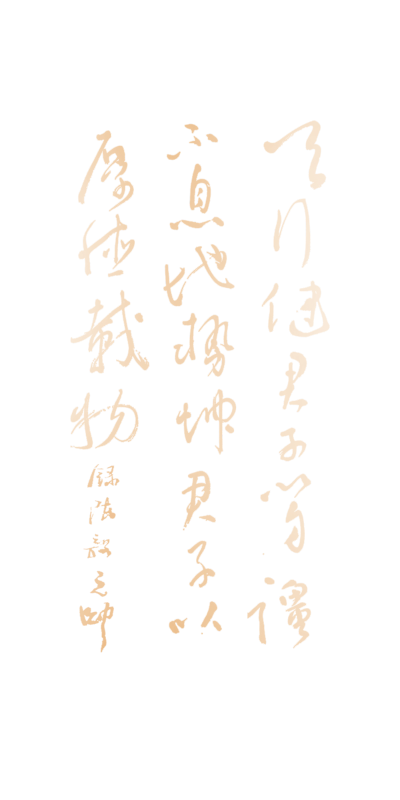 天行健君子以自强
不息地势坤君子以
厚德载物
录陈毅元帅